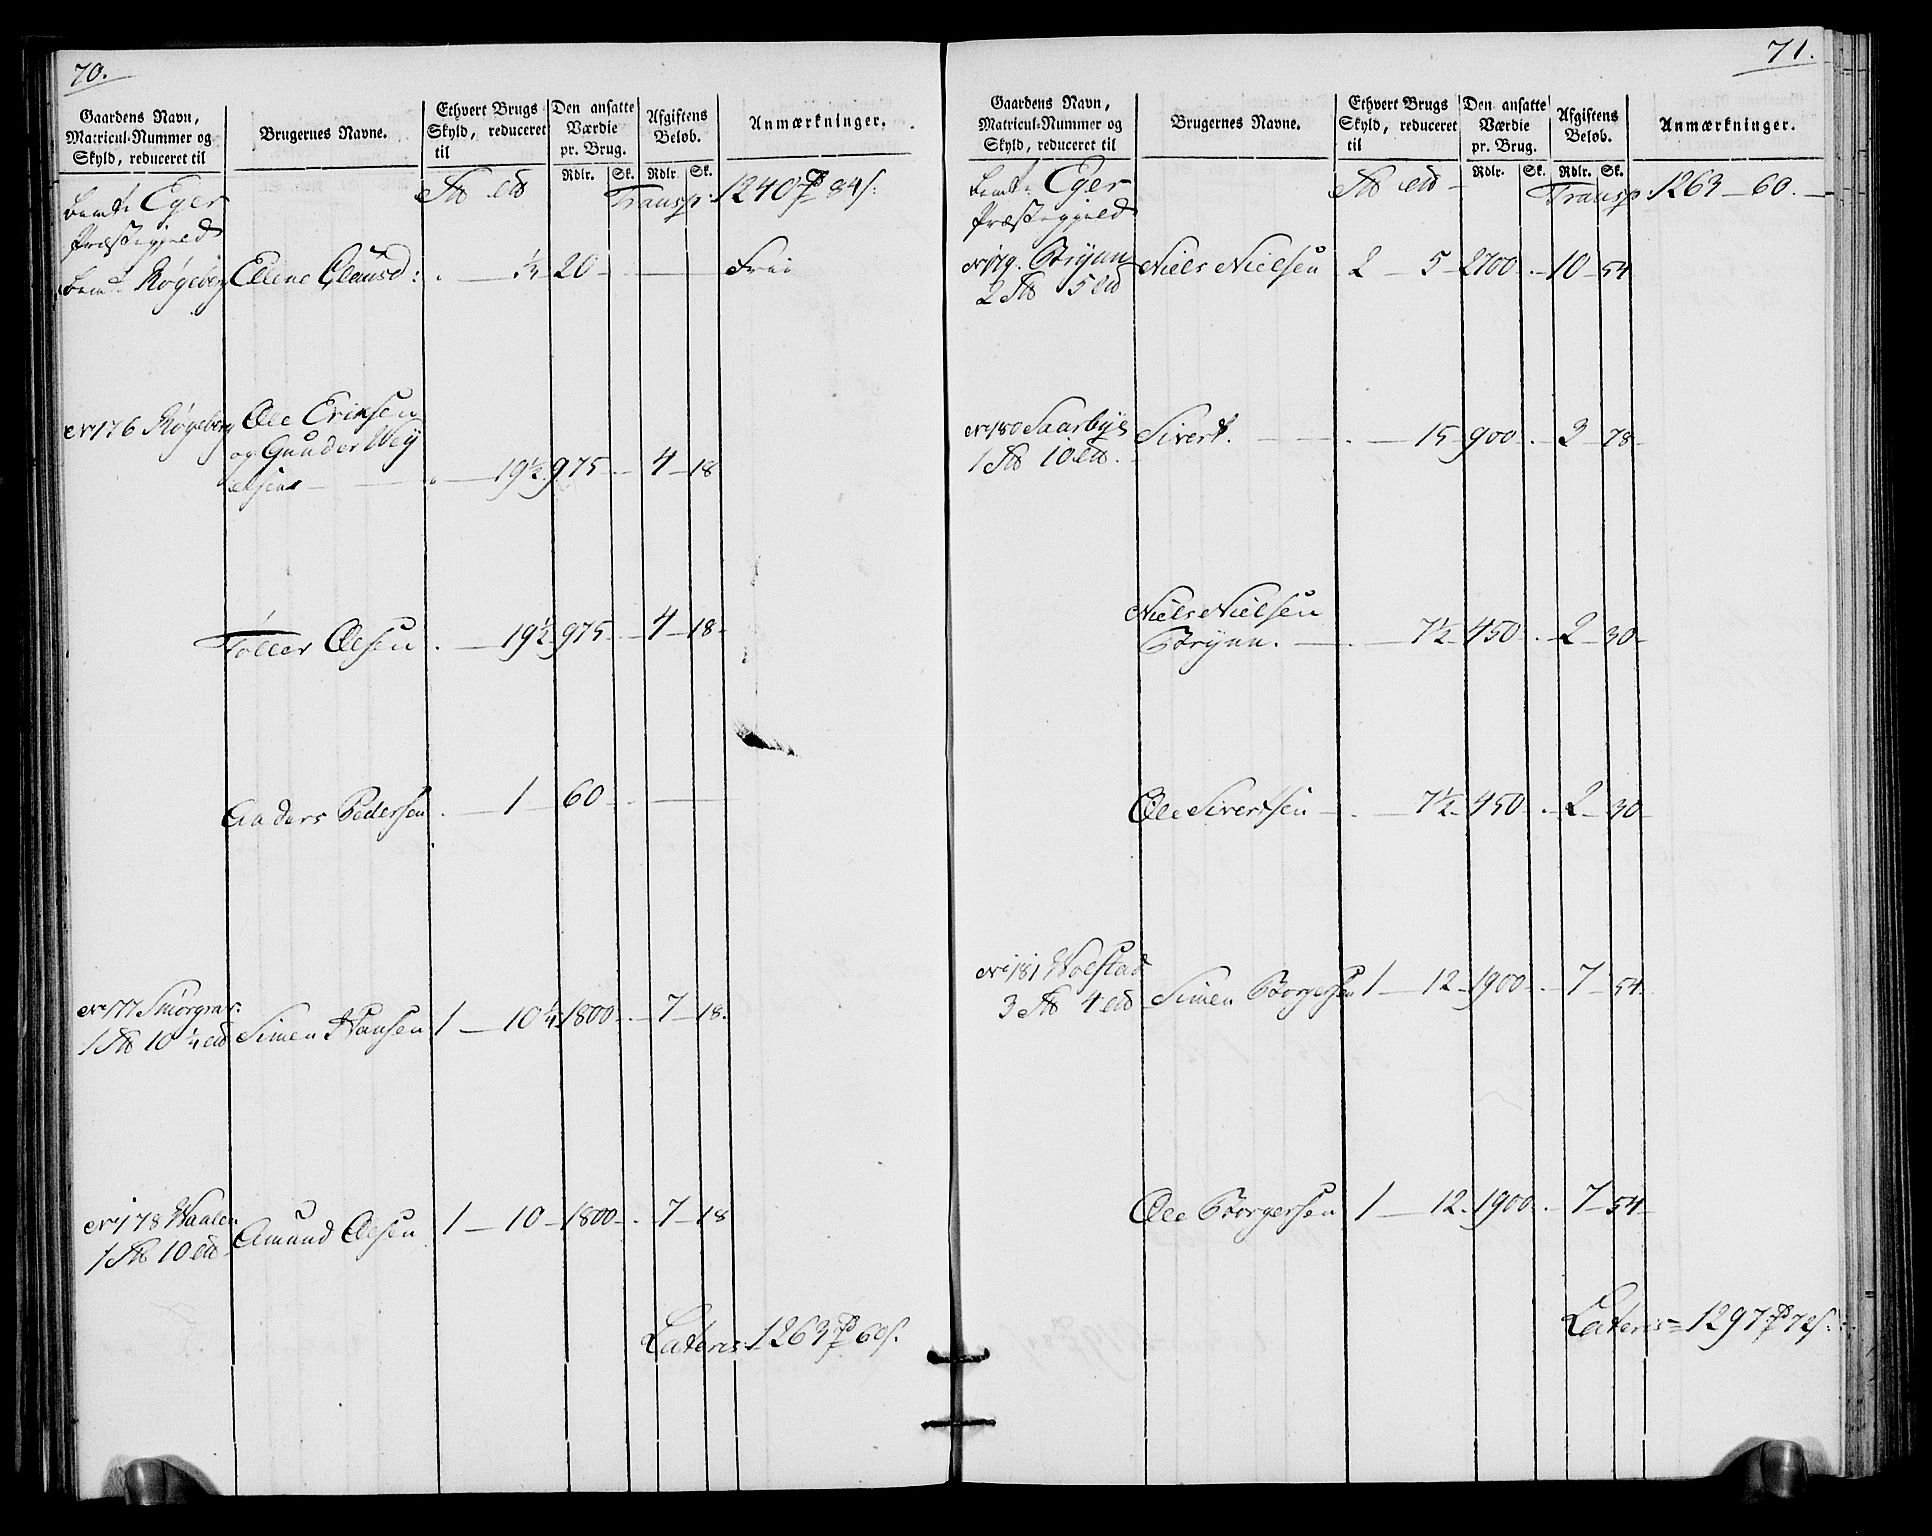 70.
Gaardens Navn, Matricul-Nummer og Skyld, reduceret til
Brugernes Navne.
Ethvert Brugs Skyld, reduceret til
Den ansatte Værdie pr. Brug.
Afgiftens Beløb.
Anmærkninger.
Rdlr. Sk. Rdlr. Sk.
Eger Transp: 1240 84
Præstegjeld
Røgeberg Elene Clausd: . — ½ 20 — Frii
No 176 Røgeberg Ole Eriksen
og Gunder
. — 19½ 975 . — 4 — 18
Toller Olsen . — 19½ 975 . — 4 — 18
Anders Pedersen . — 1 60 —
No 177 Smørgrav
1 10¼ Simen Hansen 1 — 10¼ 1800 . — 7 — 18.
No 178 Haalen
1 10 Amund Olsen 1 — 10 — 1800 . — 7 — 18
Lateris 1263 60
71.
Gaardens Navn, Matricul-Nummer og Skyld, reduceret til
Brugernes Navne.
Ethvert Brugs Skyld, reduceret til
Den ansatte Værdie pr. Brug.
Afgiftens Beløb.
Anmærkninger.
Rdlr. Sk. Rdlr. Sk.
Eger Transp: 1263 — 60. —
Præstegjeld
No 179. Brynn Niels Nielsen 2 — 5 — 2700 . — 10 — 54
2 5
No 180 Saarbye Sivert. . — 15 — 900 . — 3 — 78
1 10
Niels Nielsen
Brynn. . — 7½ — 450 . — 2 — 30
Ole Sivertsen . — 7½ — 450 . — 2 — 30
No 181 Holstad
3 4 Simen Borgersen 1 — 12 — 1900 . — 7 — 54
Ole Borgersen 1 — 12 — 1900 . — 7 — 54
Lateris 1297 72